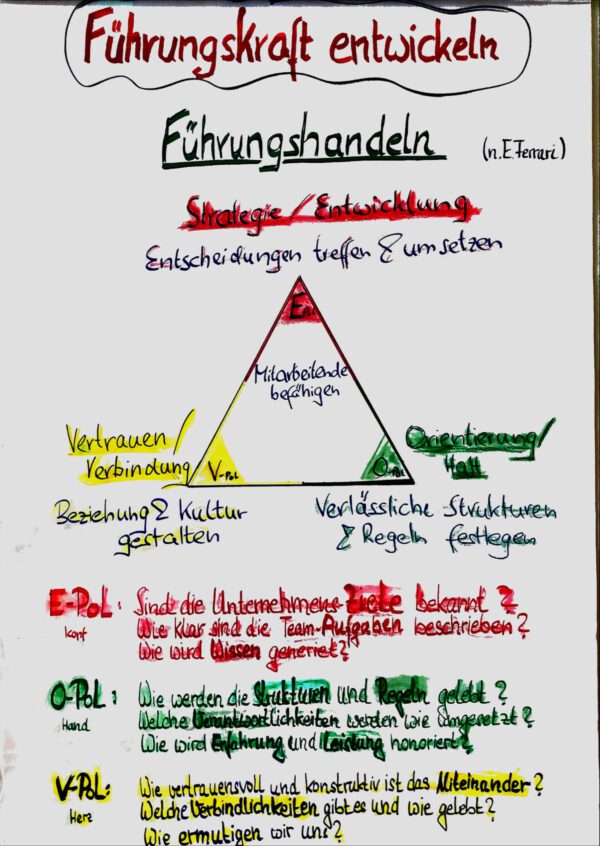 Führungskraft entwickeln
Führungshandeln (n. E. Ferrari)
Strategie / Entwicklung
Entscheidungen treffen & umsetzen
Mitarbeitende
befähigen
Vertrauen /
Verbindung
V-Pol
Orientierung /
Halt
Beziehung & Kultur
gestalten
Verlässliche Strukturen
& Regeln festlegen
E-Pol: Sind die Unternehmens-Ziele bekannt?
Kopf Wie klar sind die Team-Aufgaben beschrieben?
Wie wird Wissen generiet?
O-Pol: Wie werden die Strukturen und Regeln gelebt?
Hand Welche Verantwortlichkeiten werden wie umgesetzt?
Wie wird Erfahrung und Leistung honoriert?
V-Pol: Wie vertrauensvoll und konstruktiv ist das Miteinander?
Herz Welche Verbindlichkeiten gibt es und wie gelebt?
Wie ermutigen wir uns?